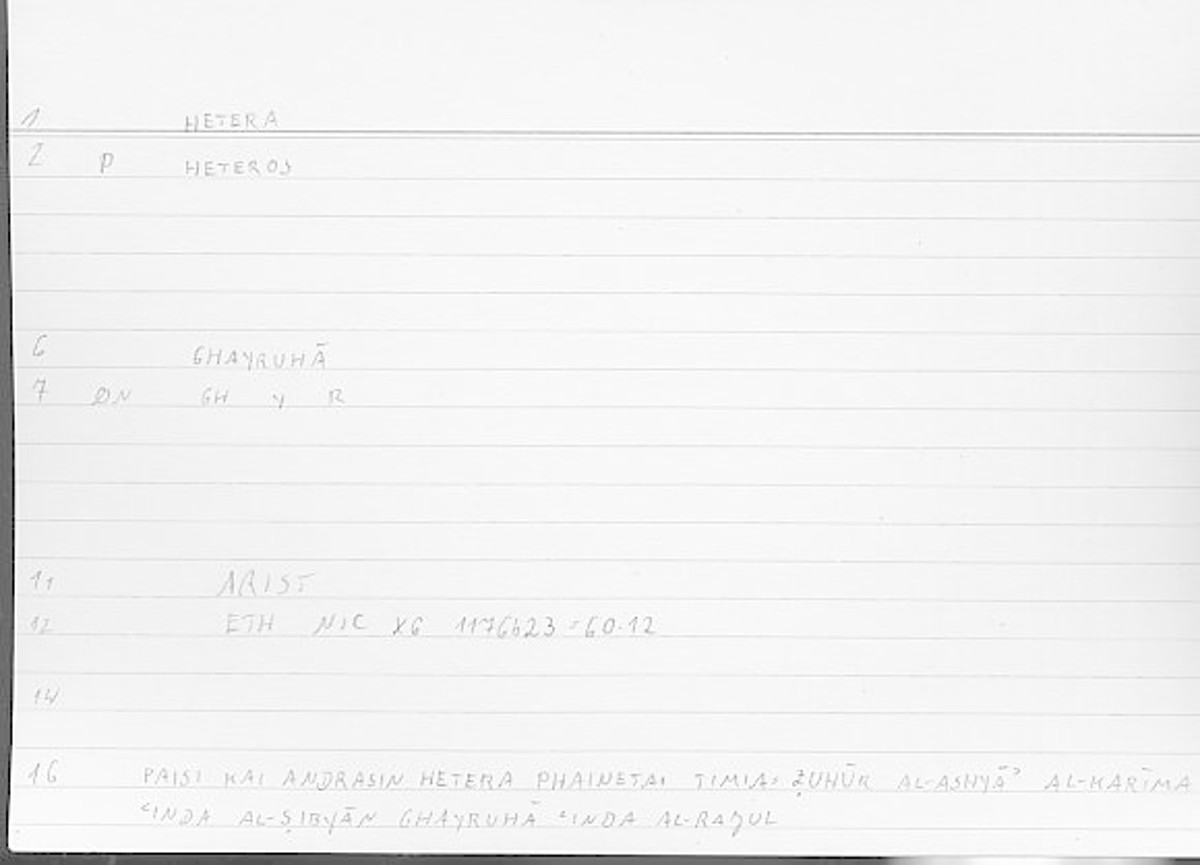 1 HETERA
2 P HETEROS
6 GHAYRUHĀ
7 ØN GH Y R
11 ARIST
12 ETH NIC X6 1176b23 = 60.12
14
16 PAISI KAI ANDRASIN HETERA PHAINETAI TIMIA = ẒUHŪR AL-ASHYĀʾ AL-KARĪMA
ʿINDA AL-ṢIBYĀN GHAYRUHĀ ʿINDA AL-RAJUL